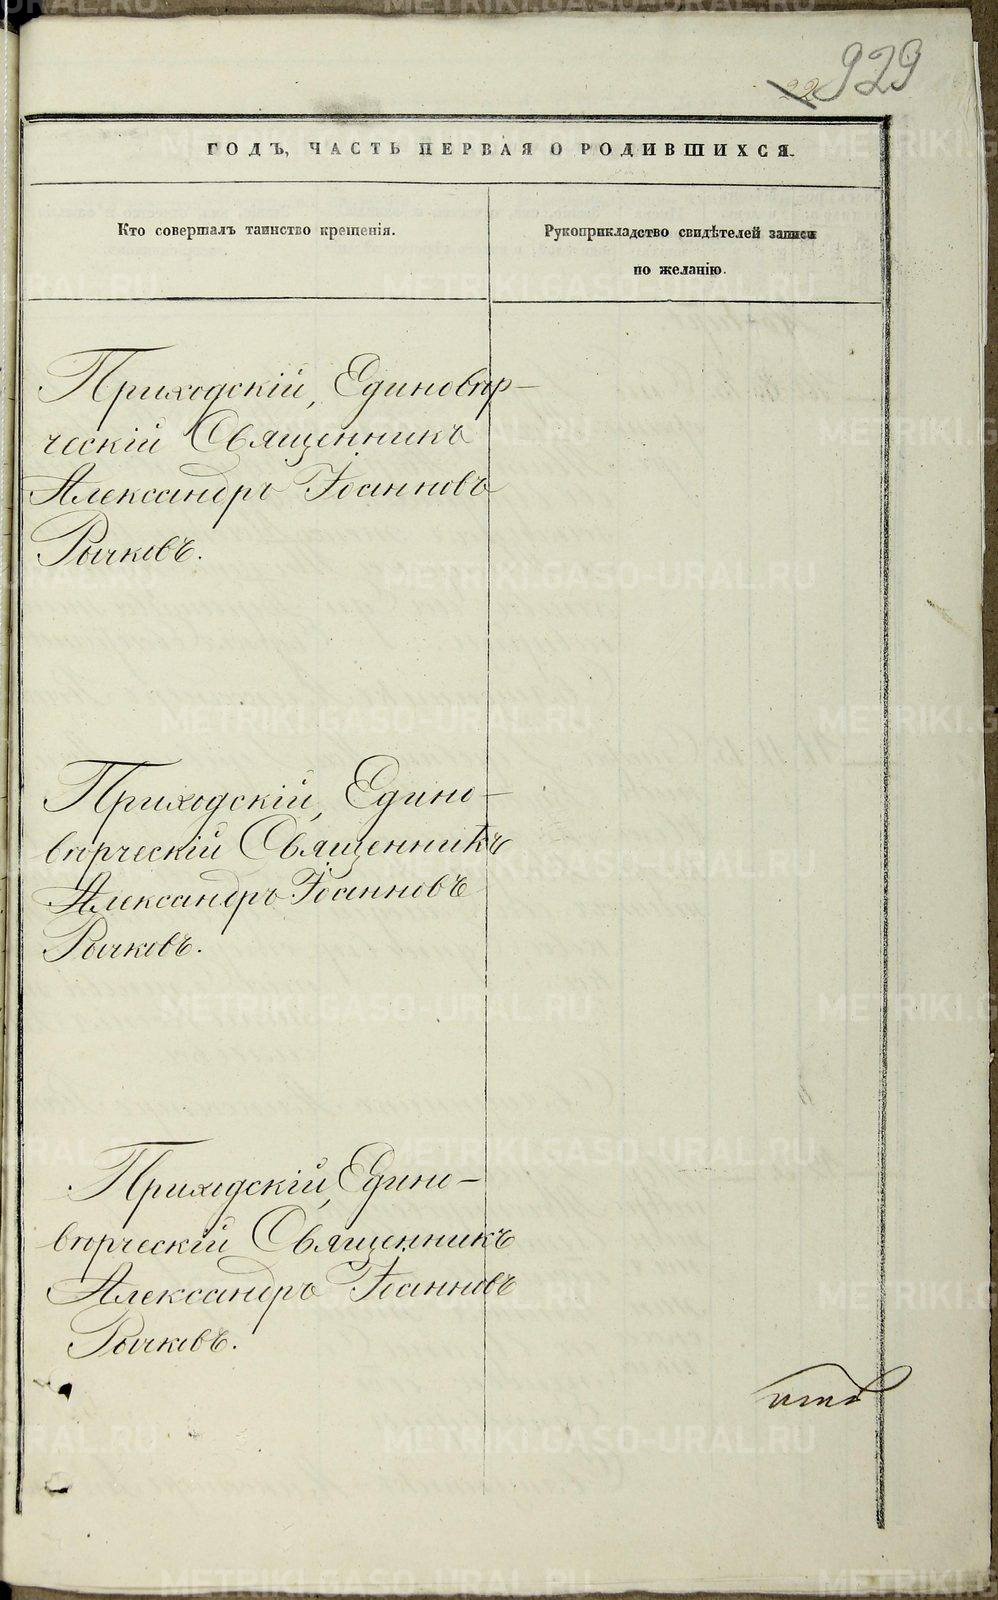 929
22
ГОДЪ, ЧАСТЬ ПЕРВАЯ О РОДИВШИХСЯ.
Кто совершалъ таинство крещенія.
Рукоприкладство свидѣтелей записи
по желанію.
Приходскій, Единовѣр-
ческій Священникъ
Александръ Іоанновъ
Рычковъ.
Приходскій, Едино-
вѣрческій Священникъ
Александръ Іоанновъ
Рычковъ.
Приходскій, Едино-
вѣрческій Священникъ
Александръ Іоанновъ
Рычковъ.
METRIKI.GASO-URAL.RU